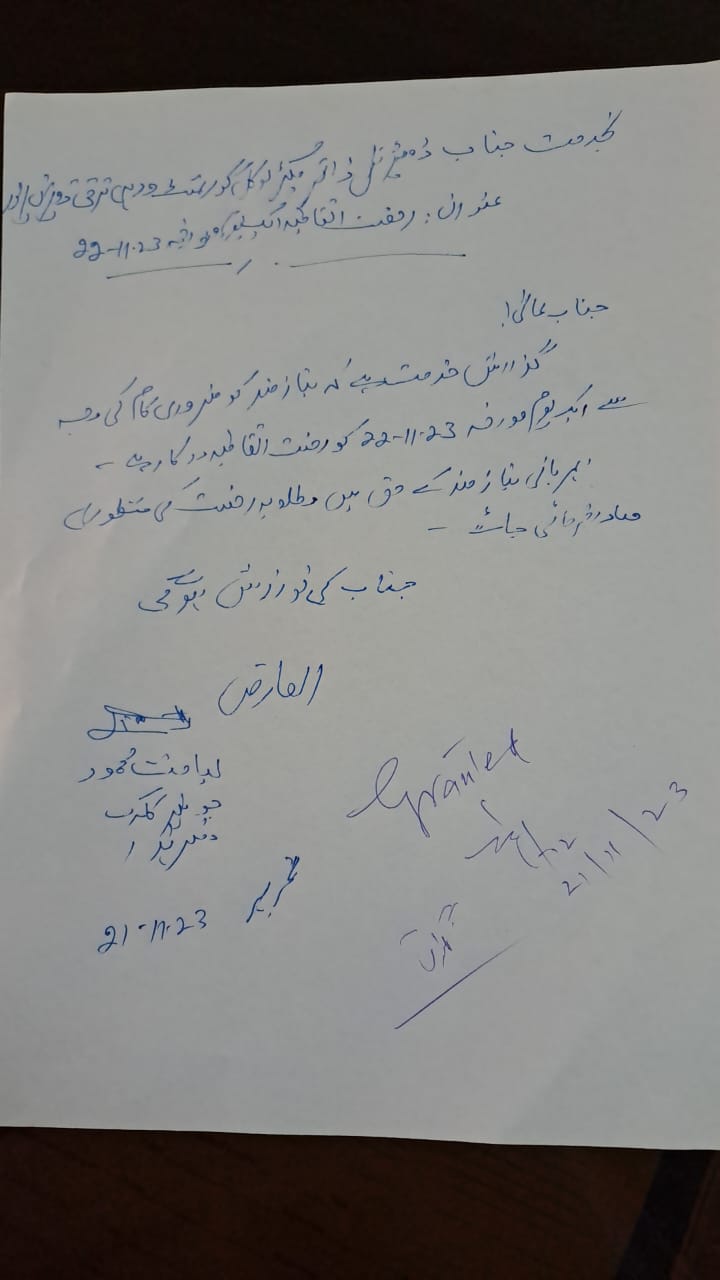 بخدمت جناب ڈویژنل ڈائریکٹر لوکل گورنمنٹ ودیہی ترقی
عنوان: رخصت اتفاقیہ ایک یوم مورخہ 22-11-23
جناب عالی!
گزارش خدمت ہے کہ نیازمند کو ضروری کام کی وجہ
سے ایک یوم مورخہ 22-11-23 کو رخصت اتفاقیہ درکار ہے۔
مہربانی نیازمند کے حق میں مطلوبہ رخصت کی منظوری
صادر فرمائی جائے۔
جناب کی نوازش ہوگی
العارض
محمود
جونیئر کلرک
دفتر ہذا
تحریر 21-11-23
Granted
21/11/23